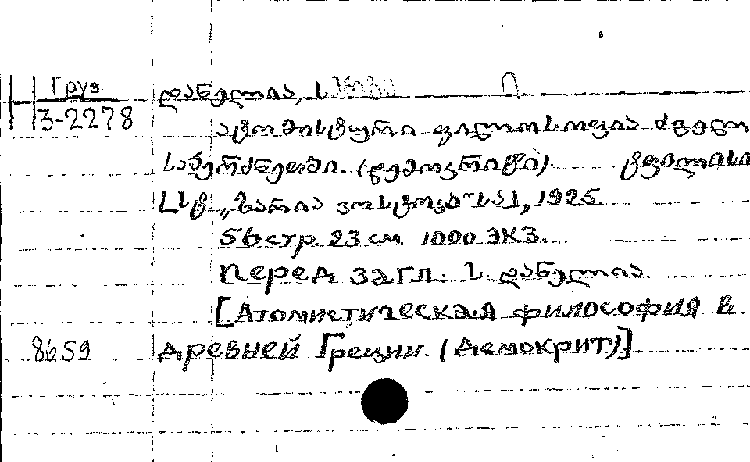 Груз
3-2278
დანელია, ს
ატომისტური ფილოსოფია ძველ
საბერძნეთში. (დემოკრიტი) ტფილისი
სტ. „ზარია ვოსტოკა"-სა], 1925
56 стр. 23 см. 1000 экз.
Перед загл.: ს. დანელია
[Атомистическая философия в
8659
древней Греции (Демокрит)]